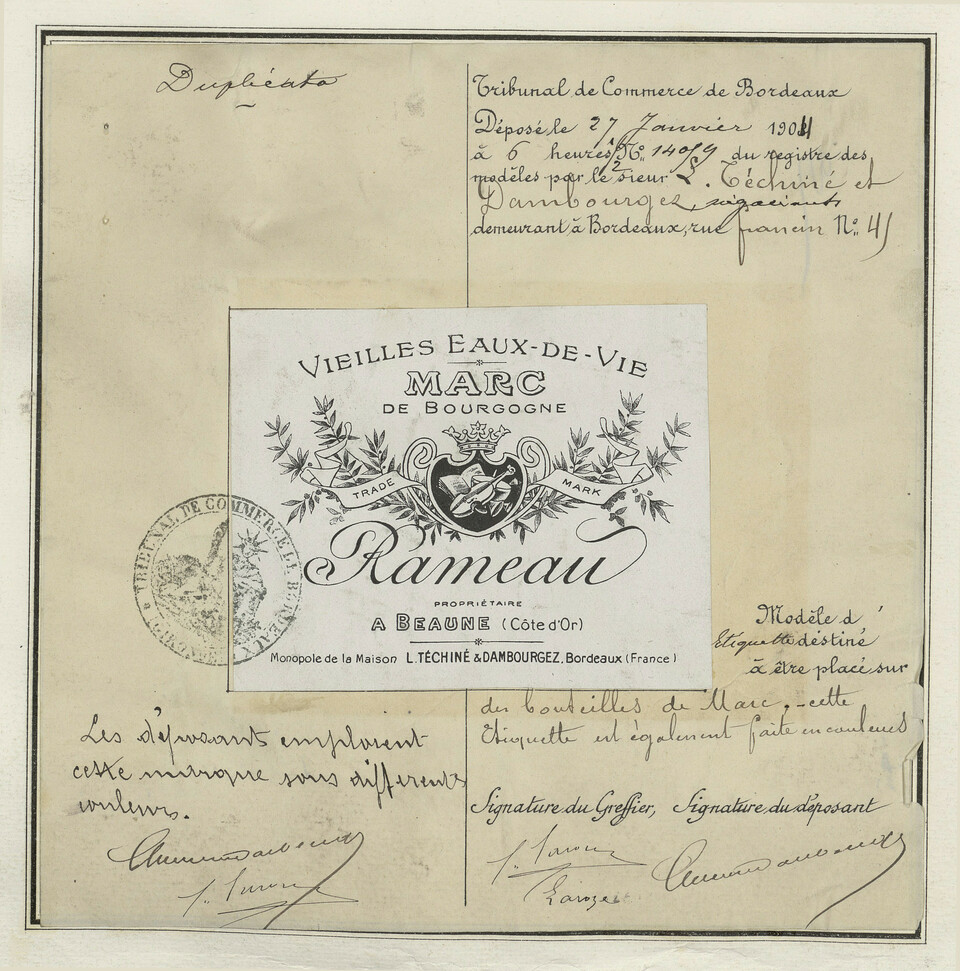 Duplicata
Tribunal de Commerce de Bordeaux
Déposé le 27 Janvier 1904
à 6 heures Nº 14059 du registre des
modèles par le sieur L. Téchiné et
Dambourgez, négociants
demeurant à Bordeaux, rue francin Nº 41
VIEILLES EAUX-DE-VIE
MARC
DE BOURGOGNE
TRADE MARK
Rameau
PROPRIÉTAIRE
A BEAUNE (Côte d'Or)
Monopole de la Maison L. TÉCHINÉ & DAMBOURGEZ, Bordeaux (France)
TRIBUNAL DE COMMERCE DE BORDEAUX
Modèle d'
Etiquette déstiné
à être placé sur
des bouteilles de Marc, - cette
Etiquette est également faite en couleurs
Les déposant emploient
cette marque sous différents
couleurs.
Signature du Greffier, Signature du déposant